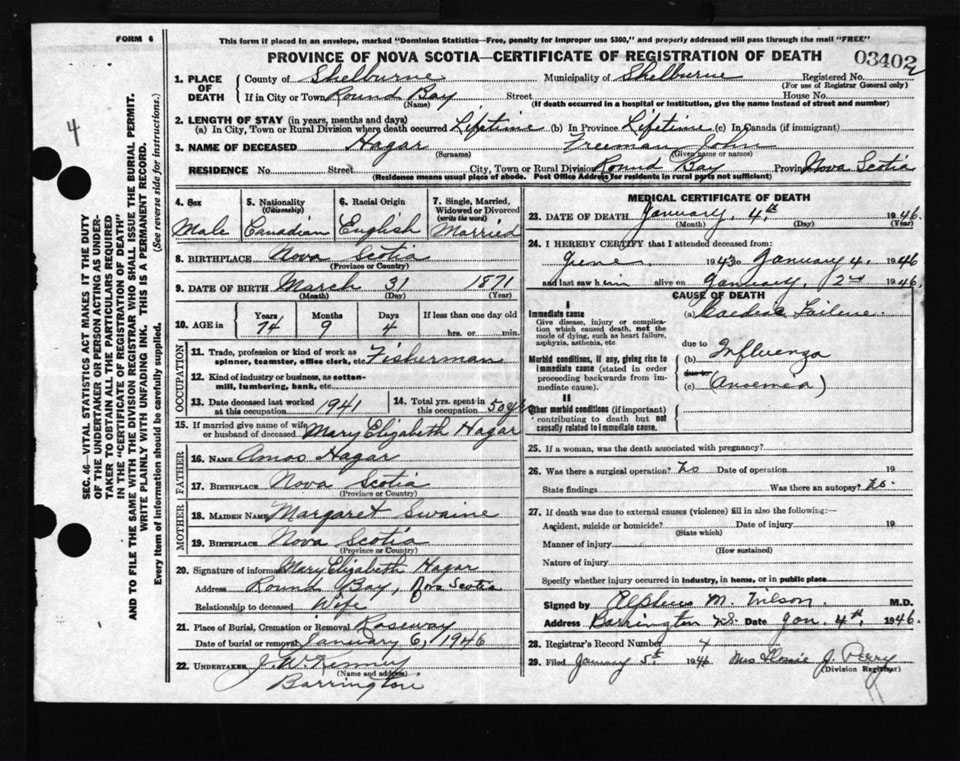 FORM 6
This form if placed in an envelope, marked "Dominion Statistics—Free, penalty for improper use $300," and properly addressed will pass through the mail "FREE"
PROVINCE OF NOVA SCOTIA—CERTIFICATE OF REGISTRATION OF DEATH
03402
1. PLACE OF DEATH County of Shelburne Municipality of Shelburne Registered No.
(For use of Registrar General only)
If in City or Town Round Bay Street House No.
(Name) (If death occurred in a hospital or institution, give the name instead of street and number)
2. LENGTH OF STAY (in years, months and days)
(a) In City, Town or Rural Division where death occurred Lifetime (b) In Province Lifetime (c) In Canada (if immigrant)
3. NAME OF DECEASED Hagar Freeman John
(Surname) (Given name or names)
RESIDENCE No. Street City, Town or Rural Division Round Bay Province Nova Scotia
(Residence means usual place of abode. Post Office Address for residents in rural parts not sufficient)
4. Sex
Male
5. Nationality
(Citizenship)
Canadian
6. Racial Origin
English
7. Single, Married,
Widowed or Divorced
(write the word)
Married
8. BIRTHPLACE Nova Scotia
(Province or Country)
9. DATE OF BIRTH March 31 1871
(Month) (Day) (Year)
10. AGE in Years Months Days If less than one day old
74 9 4 hrs. or min.
OCCUPATION
11. Trade, profession or kind of work as
spinner, teamster, office clerk, etc. Fisherman
12. Kind of industry or business, as cotton-
mill, lumbering, bank, etc.
13. Date deceased last worked
at this occupation 1941
14. Total yrs. spent in
this occupation 50 yrs
15. If married give name of wife
or husband of deceased Mary Elizabeth Hagar
FATHER
16. NAME Amos Hagar
17. BIRTHPLACE Nova Scotia
(Province or Country)
MOTHER
18. MAIDEN NAME Margaret Swaine
19. BIRTHPLACE Nova Scotia
(Province or Country)
20. Signature of informant Mary Elizabeth Hagar
Address Round Bay, Nova Scotia
Relationship to deceased Wife
21. Place of Burial, Cremation or Removal Roseway
Date of burial or removal January 6, 1946
22. UNDERTAKER J. W. Kenney
(Name and address)
Barrington
MEDICAL CERTIFICATE OF DEATH
23. DATE OF DEATH January 4th 1946
(Month) (Day) (Year)
24. I HEREBY CERTIFY that I attended deceased from:
June 1943 to January 4, 1946
and last saw him alive on January 2nd 1946
CAUSE OF DEATH
I
Immediate cause
Give disease, injury or complica-
tion which caused death, not the
mode of dying, such as heart failure,
asphyxia, asthenia, etc.
(a)
due to
Morbid conditions, if any, giving rise to
immediate cause (stated in order
proceeding backwards from im-
mediate cause).
(b) Influenza
due to
(c)
II
Other morbid conditions (if important)
contributing to death but not
causally related to immediate cause.
25. If a woman, was the death associated with pregnancy?
26. Was there a surgical operation? No Date of operation 19
State findings Was there an autopsy? No.
27. If death was due to external causes (violence) fill in also the following:—
Accident, suicide or homicide? Date of injury 19
(State which)
Manner of injury
(How sustained)
Nature of injury
Specify whether injury occurred in industry, in home, or in public place
Signed by M. Wilson M.D.
Address Barrington N.S. Date Jan. 4th, 1946
28. Registrar's Record Number 4
29. Filed January 5th 1946 Mrs J. Perry
(Division Registrar)
4
SEC. 46—VITAL STATISTICS ACT MAKES IT THE DUTY
OF THE UNDERTAKER OR PERSON ACTING AS UNDER-
TAKER TO OBTAIN ALL THE PARTICULARS REQUIRED
IN THE "CERTIFICATE OF REGISTRATION OF DEATH"
AND TO FILE THE SAME WITH THE DIVISION REGISTRAR WHO SHALL ISSUE THE BURIAL PERMIT.
WRITE PLAINLY WITH UNFADING INK. THIS IS A PERMANENT RECORD.
Every item of information should be carefully supplied. (See reverse side for instructions.)